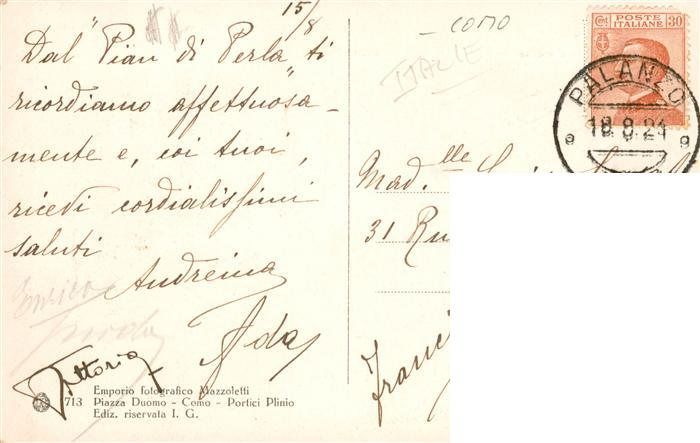 15/8
Dal "Pian di Perla" ti
ricordiamo affettuosa-
mente e, coi tuoi,
ricevi cordialissimi
saluti
Andreina
Enrico
Ada
Vittoria
Emporio fotografico Mazzoletti
713 Piazza Duomo - Como - Portici Plinio
Ediz. riservata I. G.
COMO
ITALIE
Cent. POSTE ITALIANE 30
PALANZO
18.8.21
Mad.lle
31 Ru
Franci